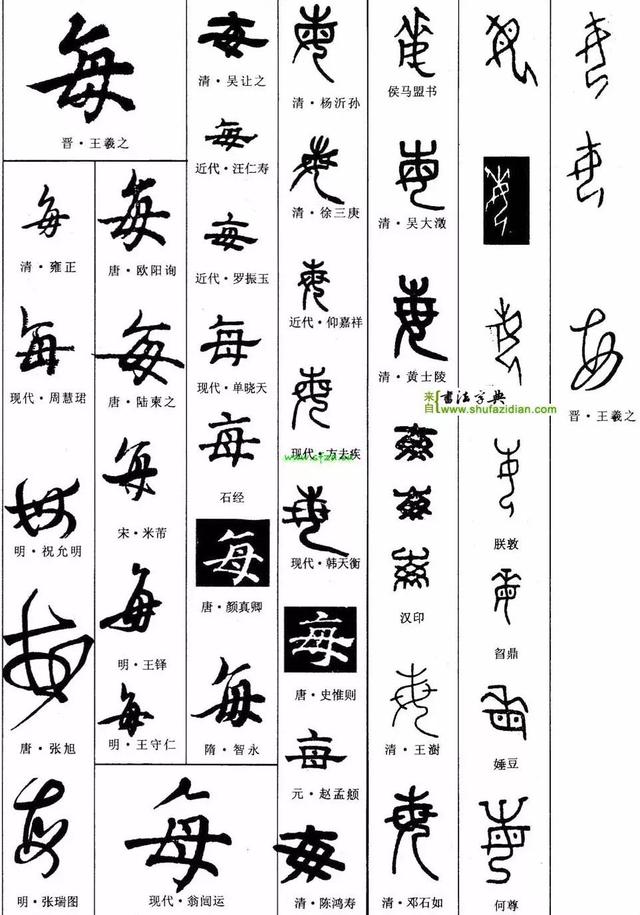 每
晋·王羲之
每
清·雍正
每
现代·周慧珺
每
明·祝允明
每
唐·张旭
每
明·张瑞图
每
唐·欧阳询
每
唐·陆柬之
每
宋·米芾
每
明·王铎
每
明·王守仁
每
现代·翁闿运
每
清·吴让之
每
近代·汪仁寿
每
近代·罗振玉
每
现代·单晓天
每
石经
每
唐·颜真卿
每
隋·智永
每
清·杨沂孙
每
清·徐三庚
每
近代·仰嘉祥
每
现代·方去疾
每
现代·韩天衡
每
唐·史惟则
每
元·赵孟頫
每
清·陈鸿寿
每
侯马盟书
每
清·吴大澂
每
清·黄士陵
每
每
每
汉印
每
清·王澍
每
清·邓石如
每
每
每
每
朕敦
每
曶鼎
每
每
何尊
每
每
每
晋·王羲之
来自 书法字典
www.shufazidian.com